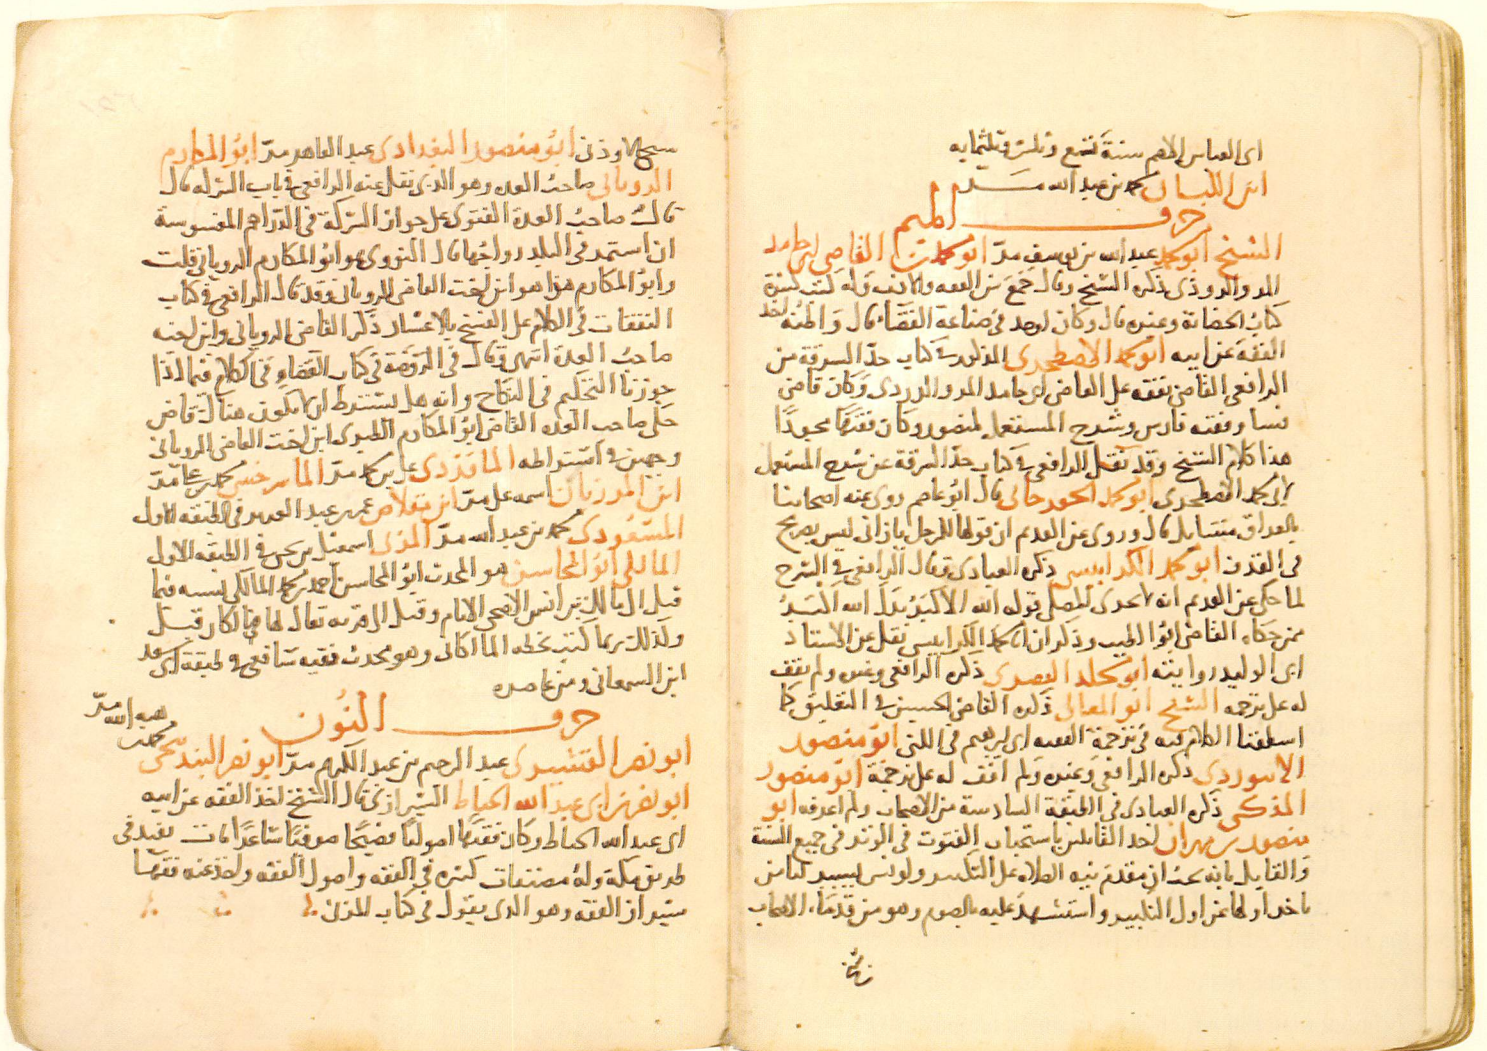 ابى العباس بن القاص سنة تسع وثلاثين وثلثمايه
ابن اللبان محمد بن عبد الله مر
حرف الميم
الشيخ ابو محمد عبد الله بن يوسف مر ابو محمد بن القاضى ابى حامد
المروالروذى ذكره الشيخ وقال جمع بين الفقه والادب وله كتب كثيرة
كتاب الحضانة وغيره قال وكان اوحد فى صناعة القضا قال واظنه اخذ
الفقه عن ابيه ابو محمد الاصطخرى المذكور فى كتاب حد السرقة من
الرافعى القاضى تفقه على القاضى ابى حامد المروالروذى وكان قاضى
فسا وفقيه فارس وشرح المستعمل لمنصور وكان فقيها مجودا
هذا كلام الشيخ وقد نقل الرافعى فى كتاب حد السرقة عن شرح المستعمل
لابى محمد الاصطخرى ابو محمد الجوزجانى قال ابو عاصم روى عنه اصحابنا
بالعراق مسايل قال وروى عن القديم ان قولها للرجل يا زانى ليس بصريح
فى القذف ابو محمد الكرابيسى ذكره العبادى وقال الرافعى فى الشرح
لما حكى عن القديم انه لا يجزى المصلى قوله الله الاكبر بدل الله اكبر
ممن حكاه القاضى ابو الطيب وذكر ان ابا محمد الكرابيسى نقل عن الاستاذ
ابى الوليد روايته ابو مخلد البصرى ذكره الرافعى وغيره ولم نقف
له على ترجمه الشيخ ابو المعالى ذكره القاضى الحسين فى التعليق كما
اسلفنا الكلام فيه فى ترجمة الفقيه ابى ابرهيم فى الكنى ابو منصور
الابيوردى ذكره الرافعى وغيره ولم اقف له على ترجمة ابو منصور
المذكى ذكره العبادى فى الطبقة السادسة من الاصحاب ولم اعرفه ابو
منصور بن مهران احد القائلين باستحباب القنوت فى الوتر فى جميع السنة
والقايل بانه يجب ان يقدم نيه الصلاه على التكبير ولو بشى يسير ليامن
تاخر اولها عن اول التكبير واستشهد عليه بالصوم وهو من قدماء الاصحاب
شيخ الاودنى ابو منصور البغدادى عبد القاهر مر ابو المكارم
الرويانى صاحب العدة وهو الذى نقل عنه الرافعى فى باب الشركة قال
قال صاحب العدة الفتوى على جواز الشركة فى الدراهم المغشوشة
ان استمر فى البلد رواجها قال النووى هو ابو المكارم الرويانى قلت
وابو المكارم هذا هو ابن اخت القاضى الرويانى وقد قال الرافعى فى كتاب
النفقات فى الكلام على الفسخ بالاعسار ذكر القاضى الرويانى وابن اخته
صاحب العدة انتهى وقال فى الروضة فى كتاب القضاء فى الكلام فيما اذا
جوزنا التحكيم فى النكاح وانه هل يشترط ان لا يكون هناك قاض
حكى صاحب العدة القاضى ابو المكارم الطبرى ابن اخت القاضى الرويانى
وجهين فى اشتراطه الماوردى على بن محمد مر الماسرجسى محمد بن على مر
ابن المرزبان اسمه على مر ابن مقلاص عمر بن عبد العزيز فى الطبقة الاول
المسعودى محمد بن عبد الله مر المزنى اسمعيل بن يحيى فى الطبقة الاول
المالكى ابو المحاسن هو المحدث ابو المحاسن احمد بن محمد المالكى نسبه فيما
قيل الى مالك بن انس الاصبحى الامام وقيل الى قريه يقال لها
ولذلك ربما كتب بخطه وهو محدث فقيه شافعى فى طبقة ابى سعد
ابن السمعانى ومن عاصره
حرف النون
ابو نصر القشيرى عبد الرحيم بن عبد الكريم مر ابو نصر البندنيجى
هبة الله مر
محمد بن
ابو نصر بن ابى عبد الله الحناط الشيرازى قال الشيخ اخذ الفقه عن ابيه
ابى عبد الله الحناط وكان فقيها اصوليا فصيحا صوفيا شاعرا مات بفيد فى
طريق مكة وله مصنفات كثيره فى الفقه واصول الفقه واخذ عنه فقها
شيراز الفقه وهو الذى يقول فى كتاب المزنى